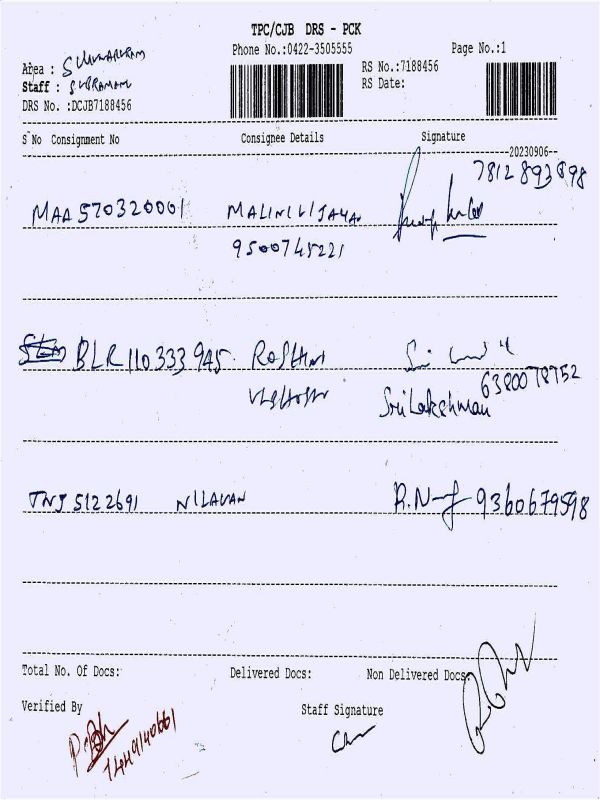 TPC/CJB DRS - PCK
Phone No.:0422-3505555
Page No.:1
Area :
Staff : SUBRAMANI
DRS No. :DCJB7188456
RS No.:7188456
RS Date:
S No Consignment No Consignee Details Signature
20230906
7812893898
MAA 570320001 MALINI VIJAYAN
9500745221
BLR 110333945 ROSHNI
SriLakshman 6380078752
TNJ 5122691 NILAVAN R.N 9360679598
Total No. Of Docs: Delivered Docs: Non Delivered Docs:
Verified By Staff Signature